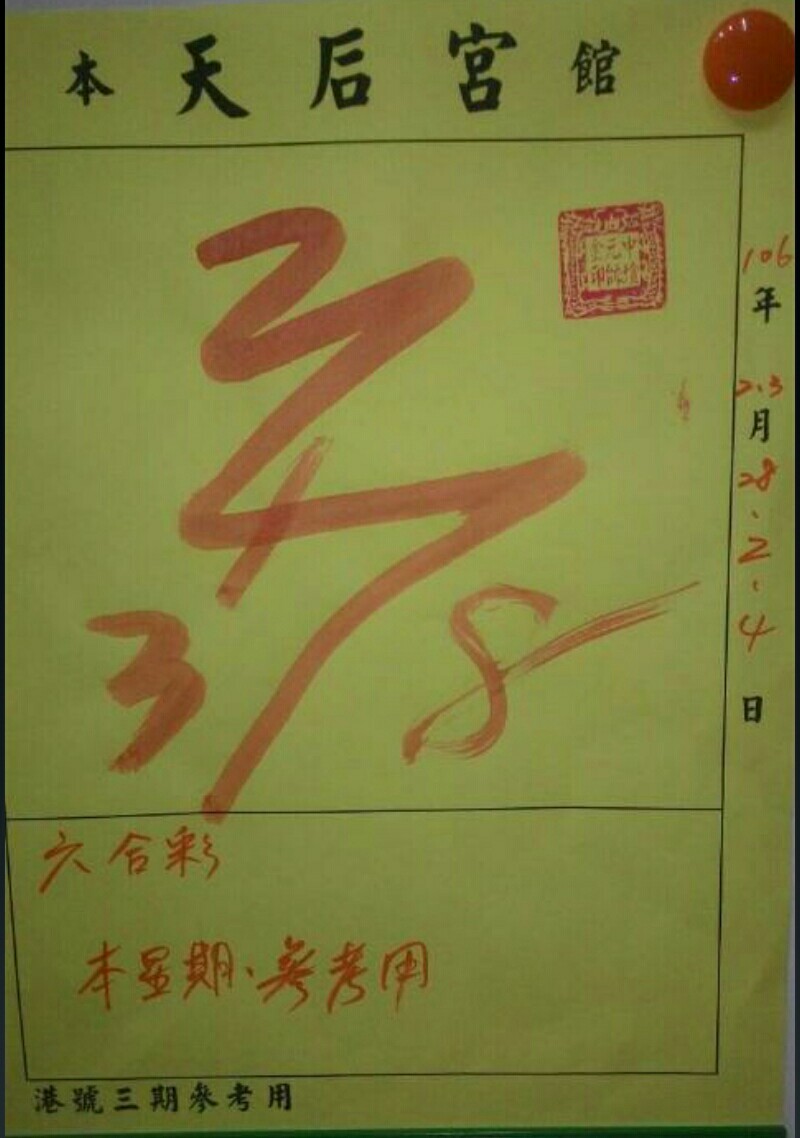 本天后宮館
106
年
2.3
月
28、2、4
日
3
8
六合彩
本星期、參考用
港號三期參考用